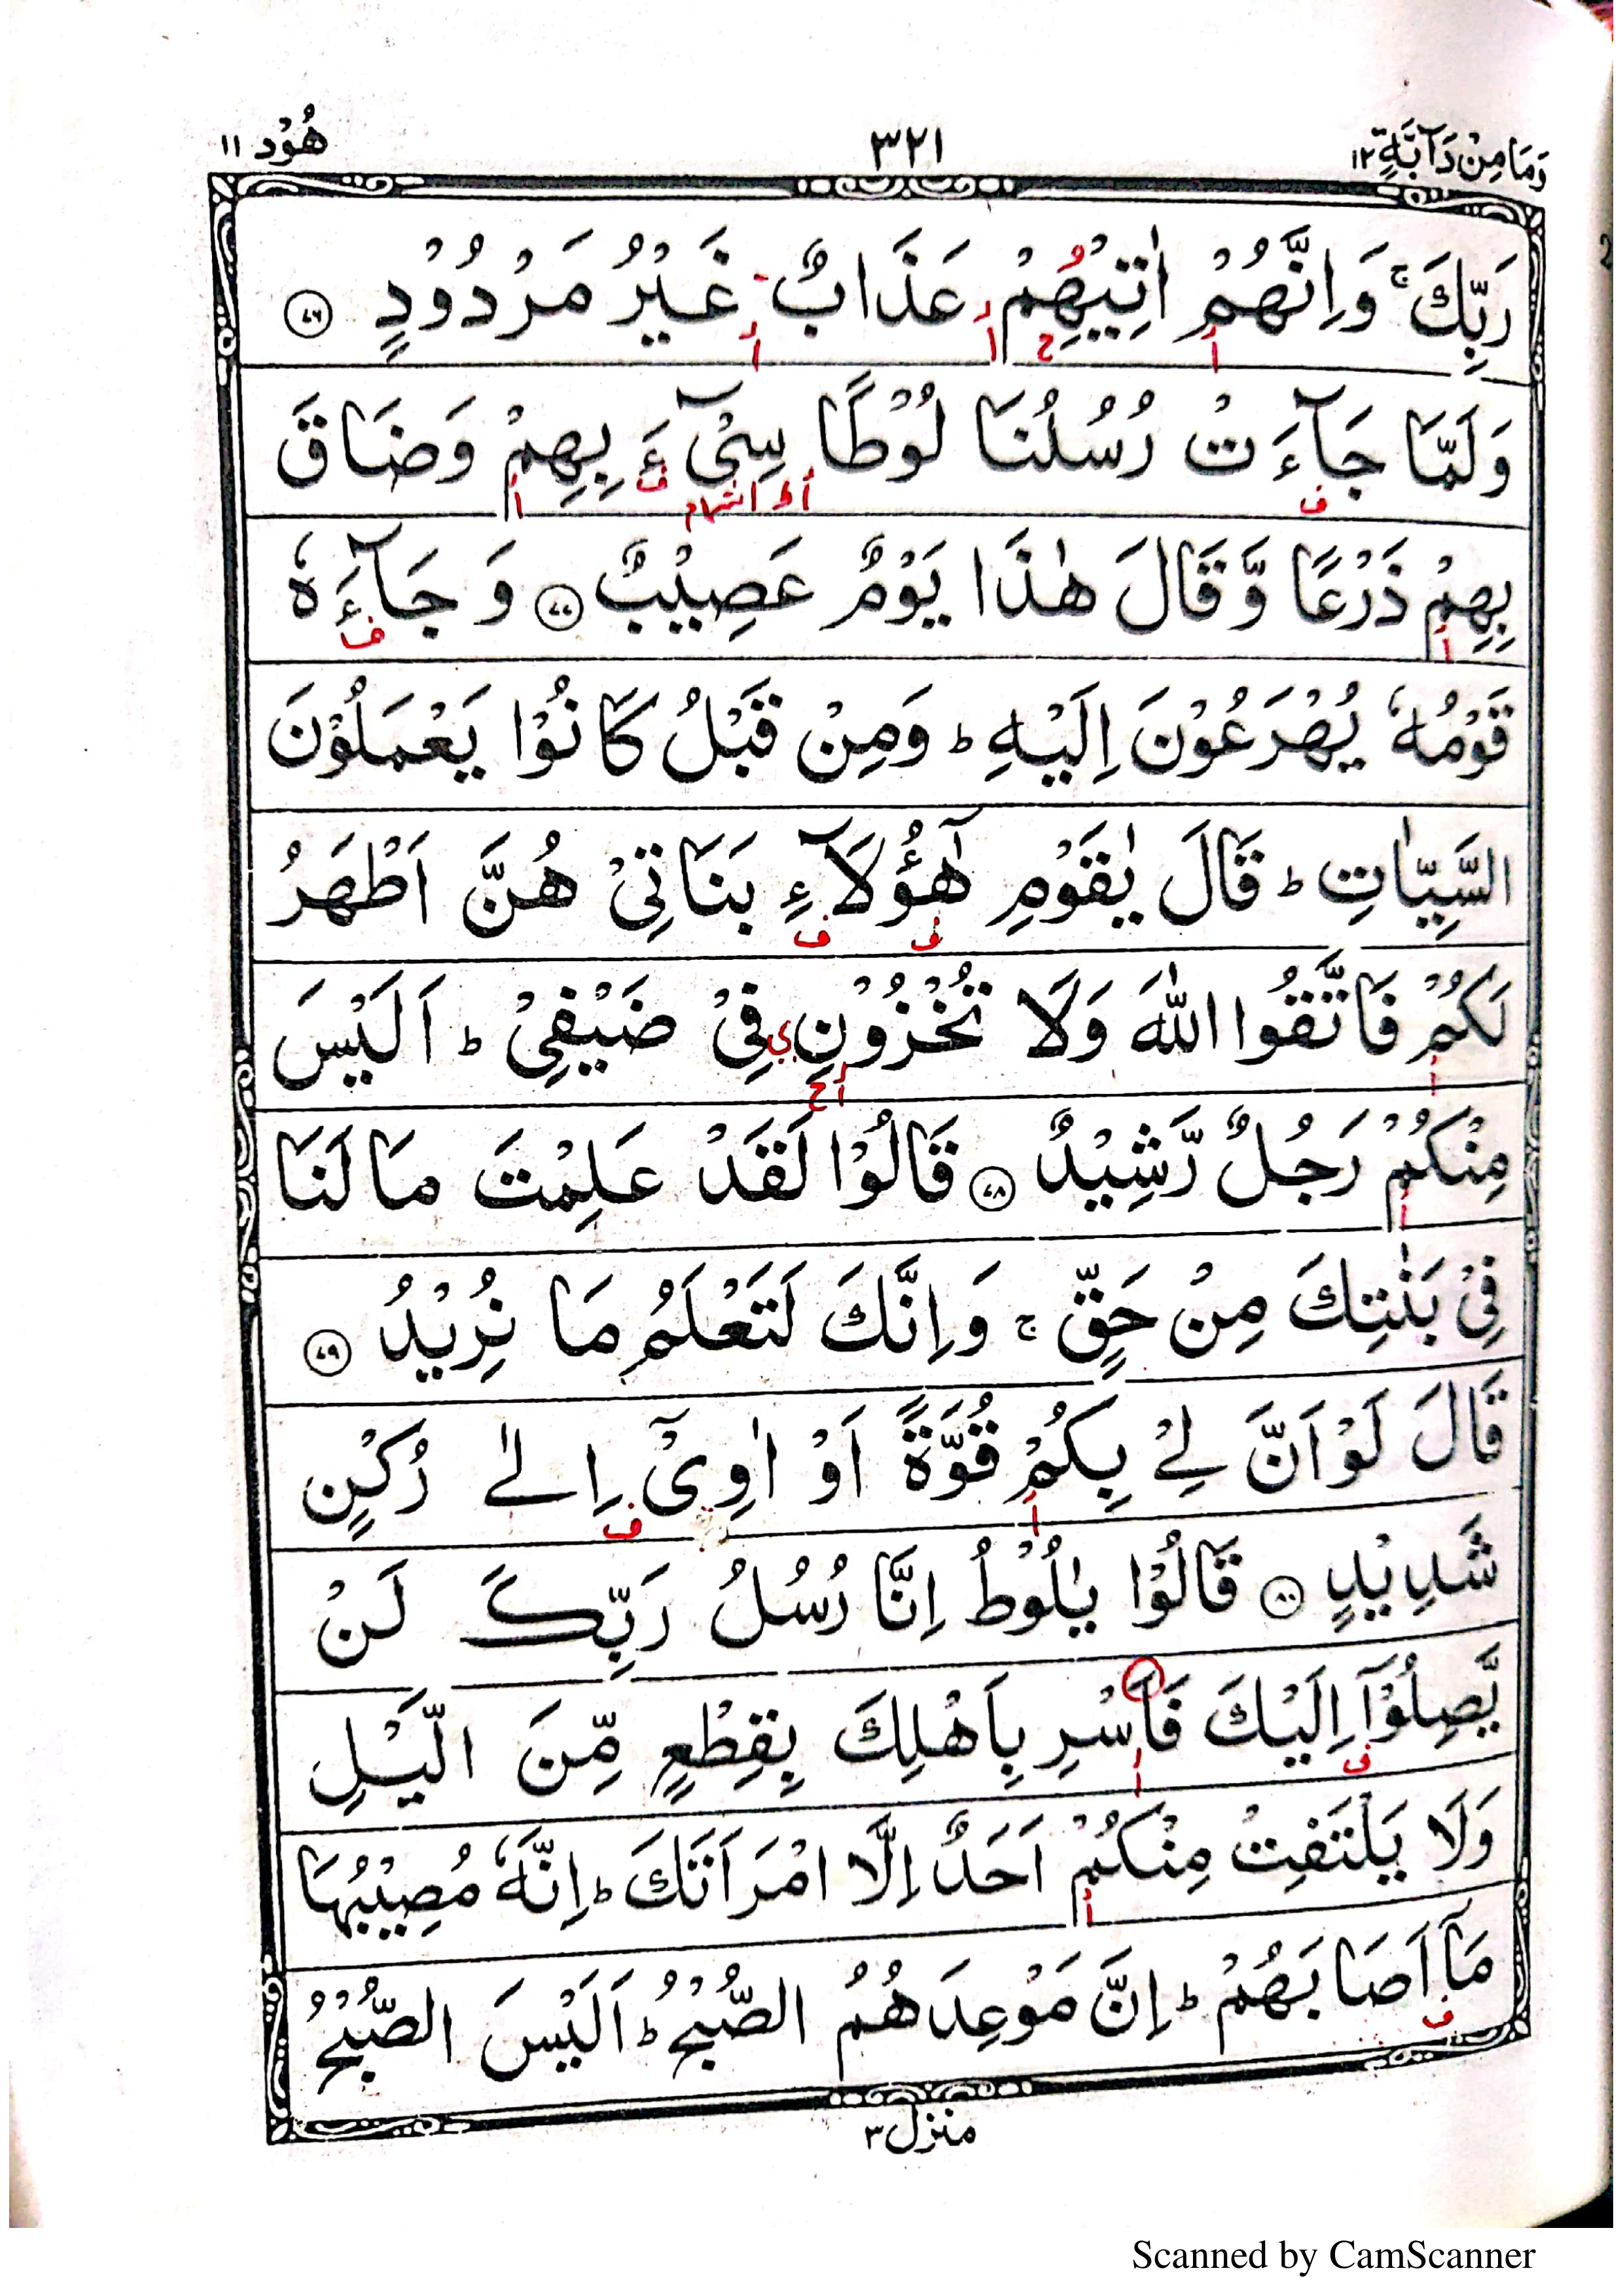 وَمَا مِنْ دَآبَّةٍ ١٢ ٣٢١ هُوْد ١١
رَبِّكَ ۚ وَاِنَّهُمْ اٰتِيْهِمْ عَذَابٌ غَيْرُ مَرْدُوْدٍ ٧٦
وَلَمَّا جَآءَتْ رُسُلُنَا لُوْطًا سِيْٓءَ بِهِمْ وَضَاقَ
بِهِمْ ذَرْعًا وَّقَالَ هٰذَا يَوْمٌ عَصِيْبٌ ٧٧ وَجَآءَهٗ
قَوْمُهٗ يُهْرَعُوْنَ اِلَيْهِ ؕ وَمِنْ قَبْلُ كَانُوْا يَعْمَلُوْنَ
السَّيِّاٰتِ ؕ قَالَ يٰقَوْمِ هٰٓؤُلَآءِ بَنَاتِيْ هُنَّ اَطْهَرُ
لَكُمْ فَاتَّقُوا اللّٰهَ وَلَا تُخْزُوْنِ فِيْ ضَيْفِيْ ؕ اَلَيْسَ
مِنْكُمْ رَجُلٌ رَّشِيْدٌ ٧٨ قَالُوْا لَقَدْ عَلِمْتَ مَا لَنَا
فِيْ بَنٰتِكَ مِنْ حَقٍّ ۚ وَاِنَّكَ لَتَعْلَمُ مَا نُرِيْدُ ٧٩
قَالَ لَوْ اَنَّ لِيْ بِكُمْ قُوَّةً اَوْ اٰوِيْٓ اِلٰى رُكْنٍ
شَدِيْدٍ ٨٠ قَالُوْا يٰلُوْطُ اِنَّا رُسُلُ رَبِّكَ لَنْ
يَّصِلُوْٓا اِلَيْكَ فَاَسْرِ بِاَهْلِكَ بِقِطْعٍ مِّنَ الَّيْلِ
وَلَا يَلْتَفِتْ مِنْكُمْ اَحَدٌ اِلَّا امْرَاَتَكَ ؕ اِنَّهٗ مُصِيْبُهَا
مَآ اَصَابَهُمْ ؕ اِنَّ مَوْعِدَهُمُ الصُّبْحُ ؕ اَلَيْسَ الصُّبْحُ
منزل ٣
Scanned by CamScanner